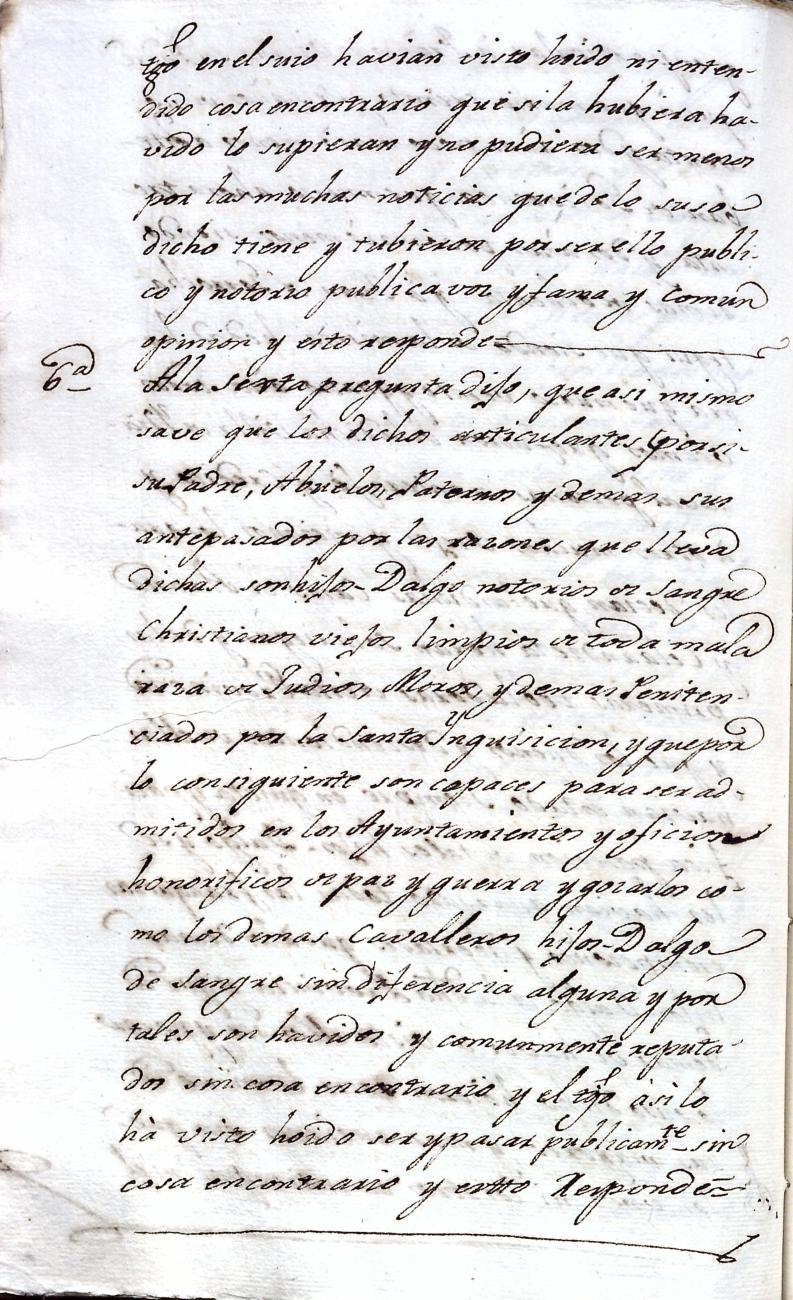 tgo en el suio havian visto hoido ni enten-
dido cosa encontrario que si la hubiera ha-
vido lo supieran y no pudiera ser menos
por las muchas noticias que de lo suso-
dicho tiene y tubieron por ser ello publi-
co y notorio publica voz y fama y comun
opinion y esto responde=
6ª
A la sexta pregunta dijo, que asi mismo
save que los dichos articulantes por si
su Padre, Abuelos Paternos y demas sus
antepasados por las razones que lleva
dichas son hijos-Dalgo notorios de sangre
Christianos viejos limpios de toda mala
raza de Judios, Moros, y demas Peniten-
ciados por la Santa Ynquisicion, y que por
lo consiguiente son capaces para ser ad-
mitidos en los Ayuntamientos y oficios
honorificos de paz y guerra y gozarlos co-
mo los demas Cavalleros hijos-Dalgo
de sangre sin diferencia alguna y por
tales son havidos y comunmente reputa-
dos sin cosa encontrario y el tgo asi lo
hà visto hoido ser y pasar publicamte sin
cosa encontrario y estto Responde=